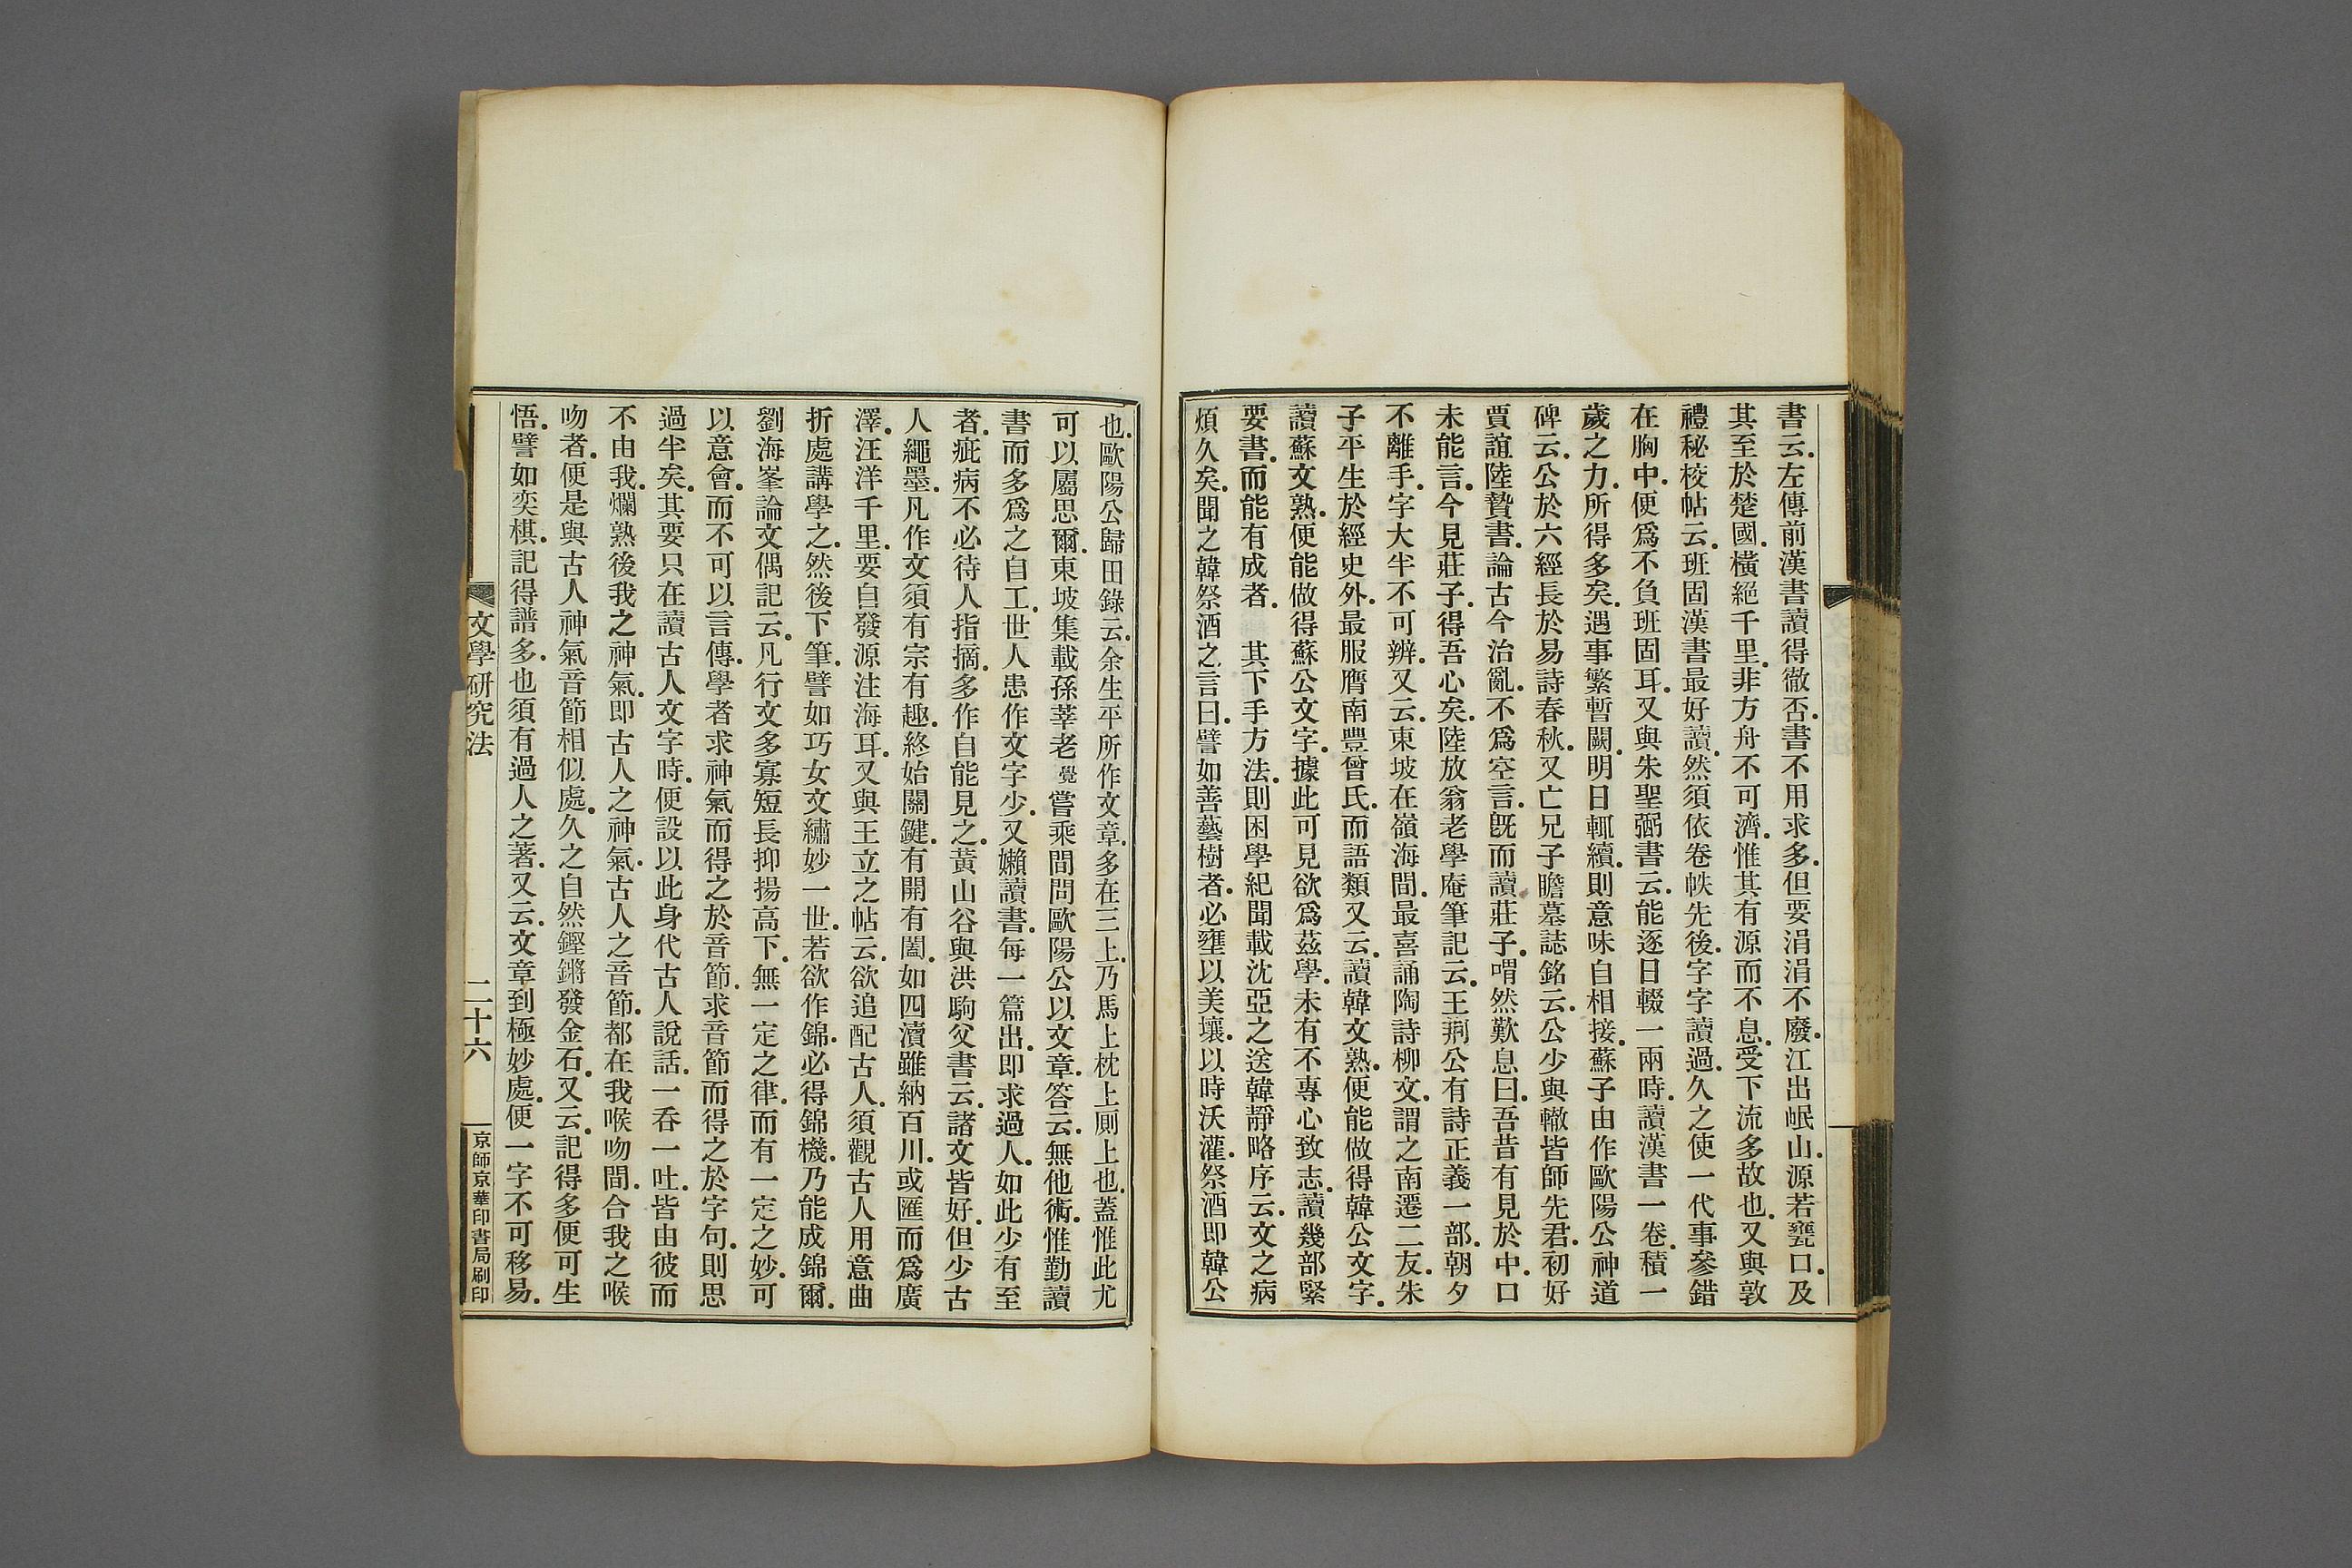 書云.左傳前漢書讀得徹否.書不用求多.但要涓涓不廢.江出岷山.源若甕口.及
其至於楚國.橫絕千里.非方舟不可濟.惟其有源而不息.受下流多故也.又與敦
禮秘校帖云.班固漢書最好讀.然須依卷帙先後.字字讀過.久之使一代事參錯
在胸中.便爲不負班固耳.又與朱聖弼書云.能逐日輟一兩時.讀漢書一卷.積一
歲之力.所得多矣.遇事繁暫闕.明日輒續.則意味自相接.蘇子由作歐陽公神道
碑云.公於六經長於易詩春秋.又亡兄子瞻墓誌銘云.公少與轍皆師先君.初好
賈誼陸贄書.論古今治亂.不爲空言.旣而讀莊子.喟然歎息曰.吾昔有見於中.口
未能言.今見莊子.得吾心矣.陸放翁老學庵筆記云.王荊公有詩正義一部.朝夕
不離手.字大半不可辨.又云.東坡在嶺海間.最喜誦陶詩柳文.謂之南遷二友.朱
子平生於經史外.最服膺南豐曾氏.而語類又云.讀韓文熟.便能做得韓公文字.
讀蘇文熟.便能做得蘇公文字.據此可見欲爲茲學.未有不專心致志.讀幾部緊
要書.而能有成者.　其下手方法.則困學紀聞載沈亞之送韓靜略序云.文之病
煩久矣.聞之韓祭酒之言曰.譬如善藝樹者.必壅以美壤.以時沃灌.祭酒即韓公
也.歐陽公歸田錄云.余生平所作文章.多在三上.乃馬上枕上厠上也.蓋惟此尤
可以屬思爾.東坡集載孫莘老覺嘗乘間問歐陽公以文章.答云.無他術.惟勤讀
書而多爲之自工.世人患作文字少.又嬾讀書.每一篇出.即求過人.如此少有至
者.疵病不必待人指摘.多作自能見之.黃山谷與洪駒父書云.諸文皆好.但少古
人繩墨.凡作文須有宗有趣.終始關鍵.有開有闔.如四瀆雖納百川.或匯而爲廣
澤.汪洋千里.要自發源注海耳.又與王立之帖云.欲追配古人.須觀古人用意曲
折處講學之.然後下筆.譬如巧女文繡妙一世.若欲作錦.必得錦機.乃能成錦爾.
劉海峯論文偶記云.凡行文多寡短長抑揚高下.無一定之律.而有一定之妙.可
以意會.而不可以言傳.學者求神氣而得之於音節.求音節而得之於字句.則思
過半矣.其要只在讀古人文字時.便設以此身代古人說話.一吞一吐.皆由彼而
不由我.爛熟後我之神氣.即古人之神氣.古人之音節.都在我喉吻間.合我之喉
吻者.便是與古人神氣音節相似處.久之自然鏗鏘發金石.又云.記得多便可生
悟.譬如奕棋.記得譜多.也須有過人之著.又云.文章到極妙處.便一字不可移易.
文學研究法
二十六
京師京華印書局刷印